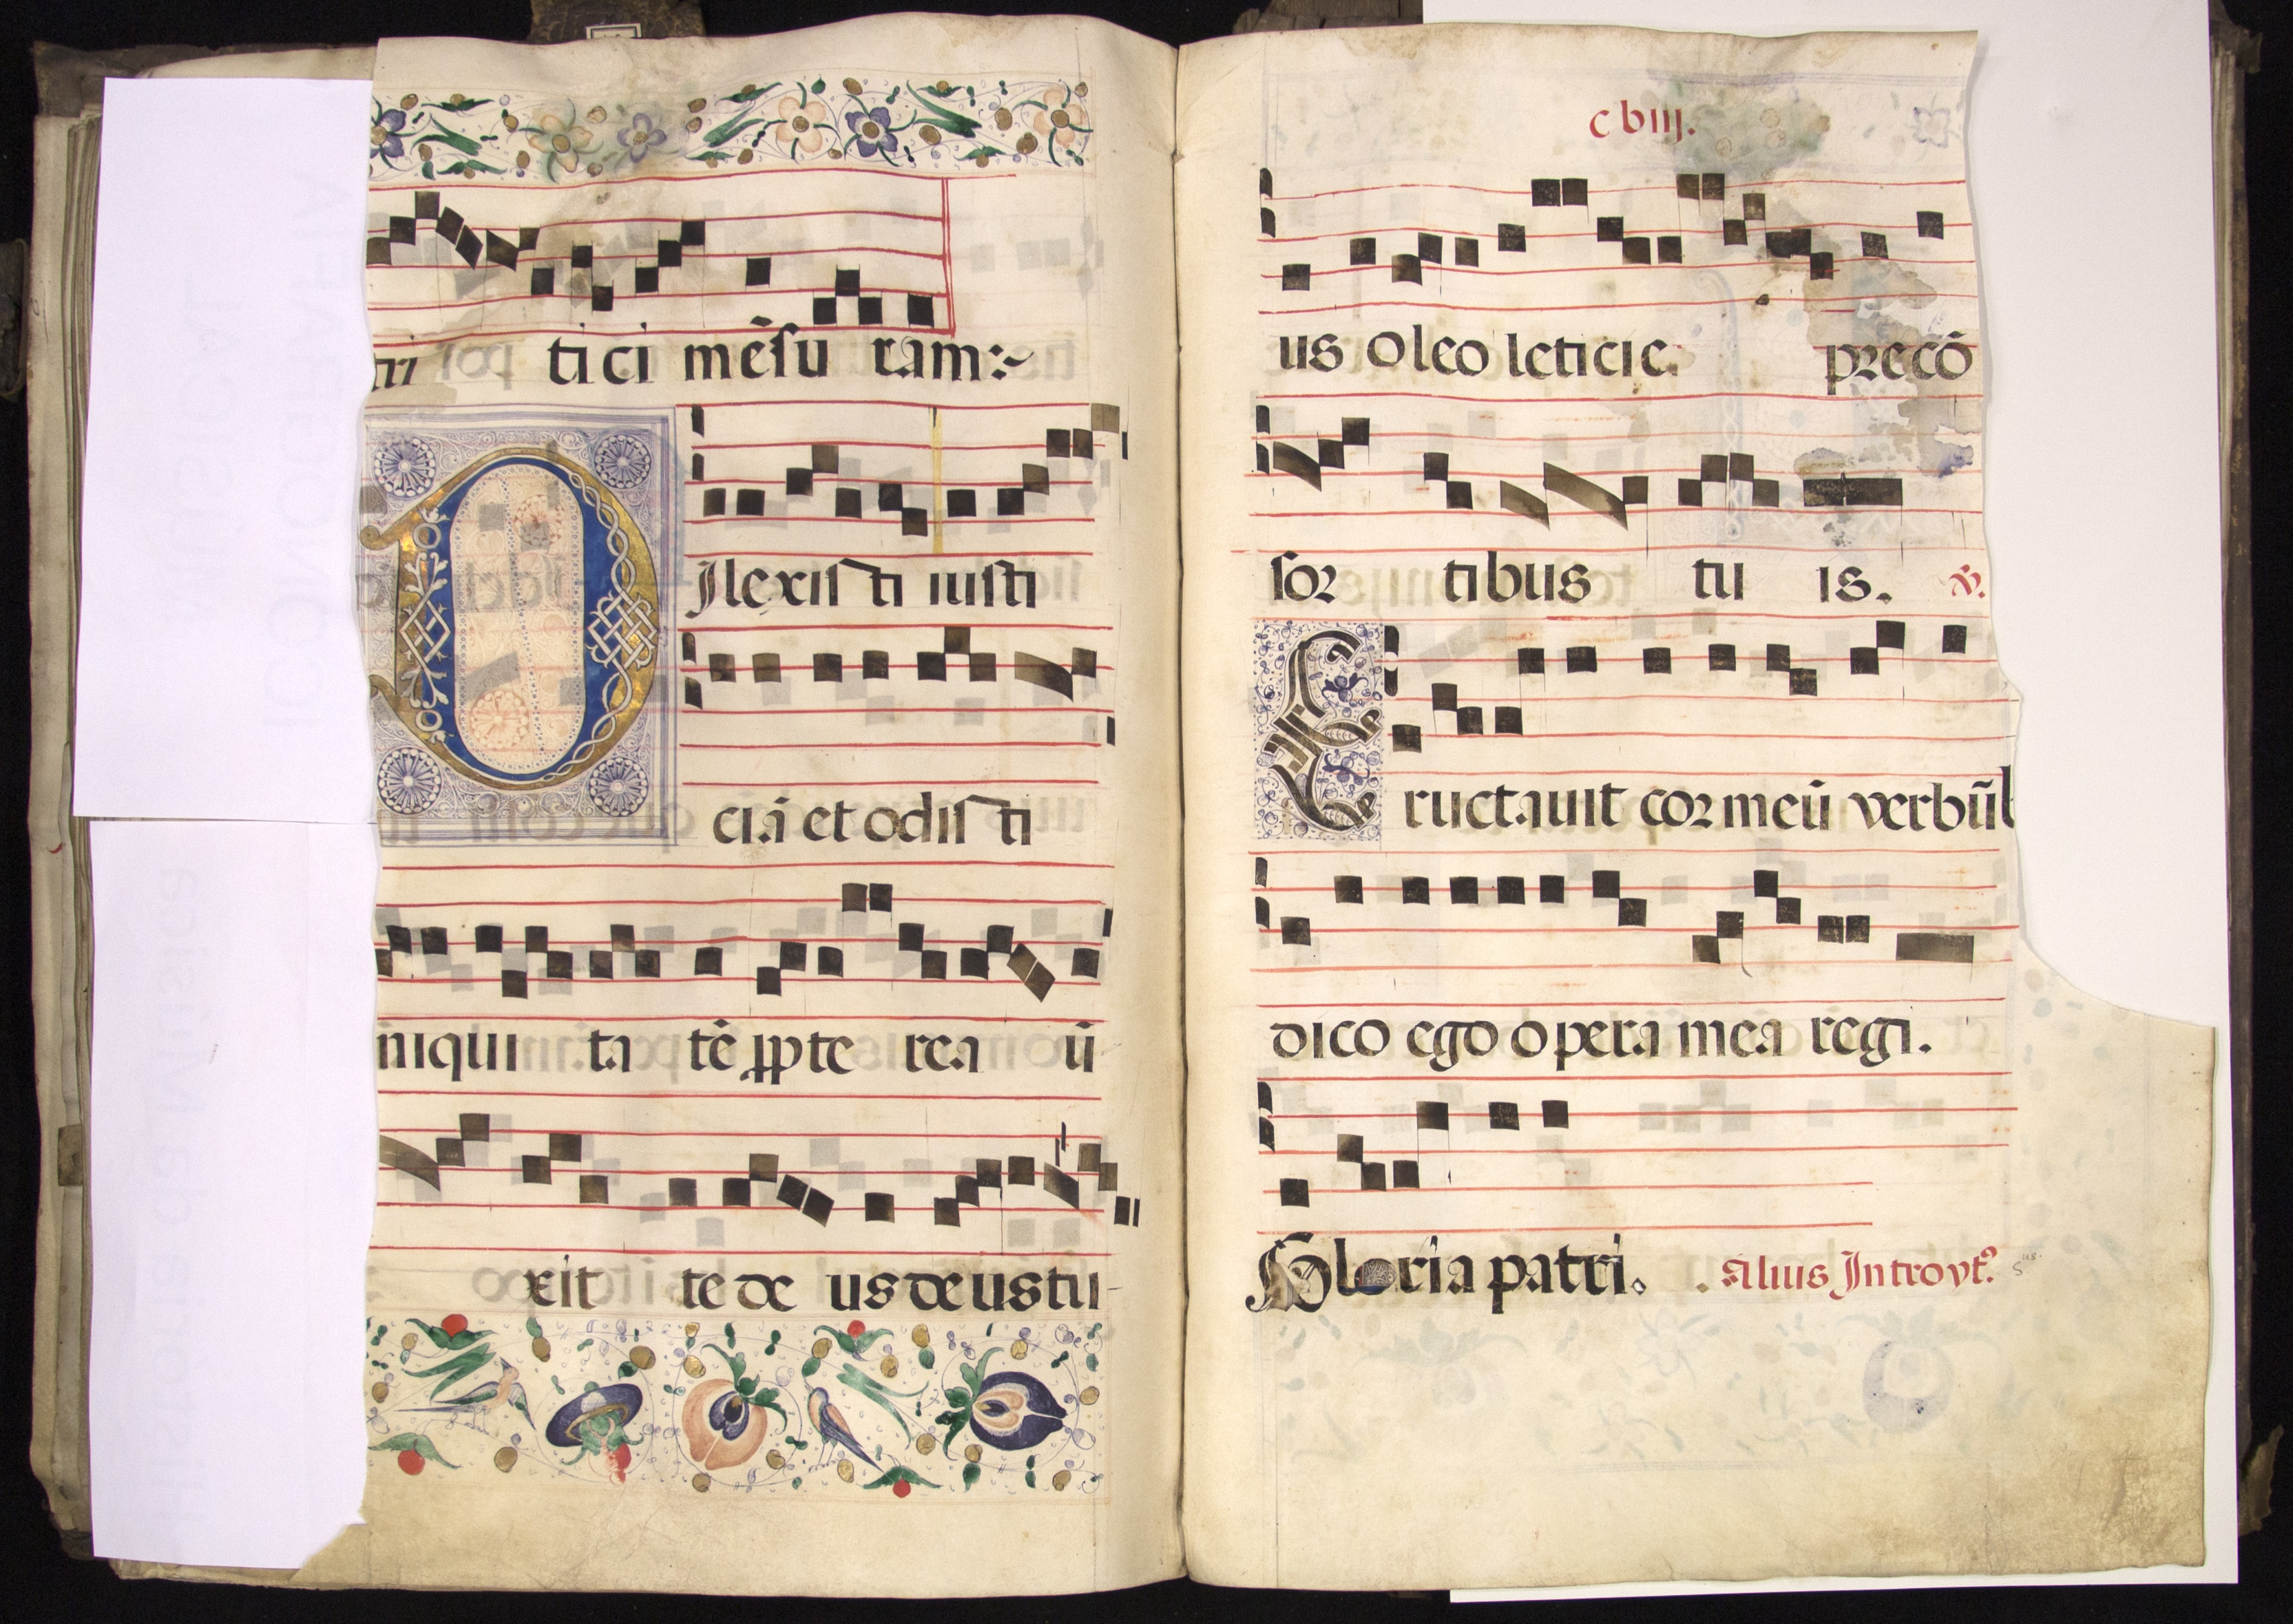 tri tici mẽsu ram:~
DJlexisti iusti
ciã et odisti
iniqui ta tẽ ꝓpte rea ũ
xit te de us deus tu
c biij.
us oleo leticie precõ
sor tibus tu is. ℣.
Eructauit cor meũ verbũ b
dico ego opera mea regi.
Gloria patri. Alius Introyt⁹